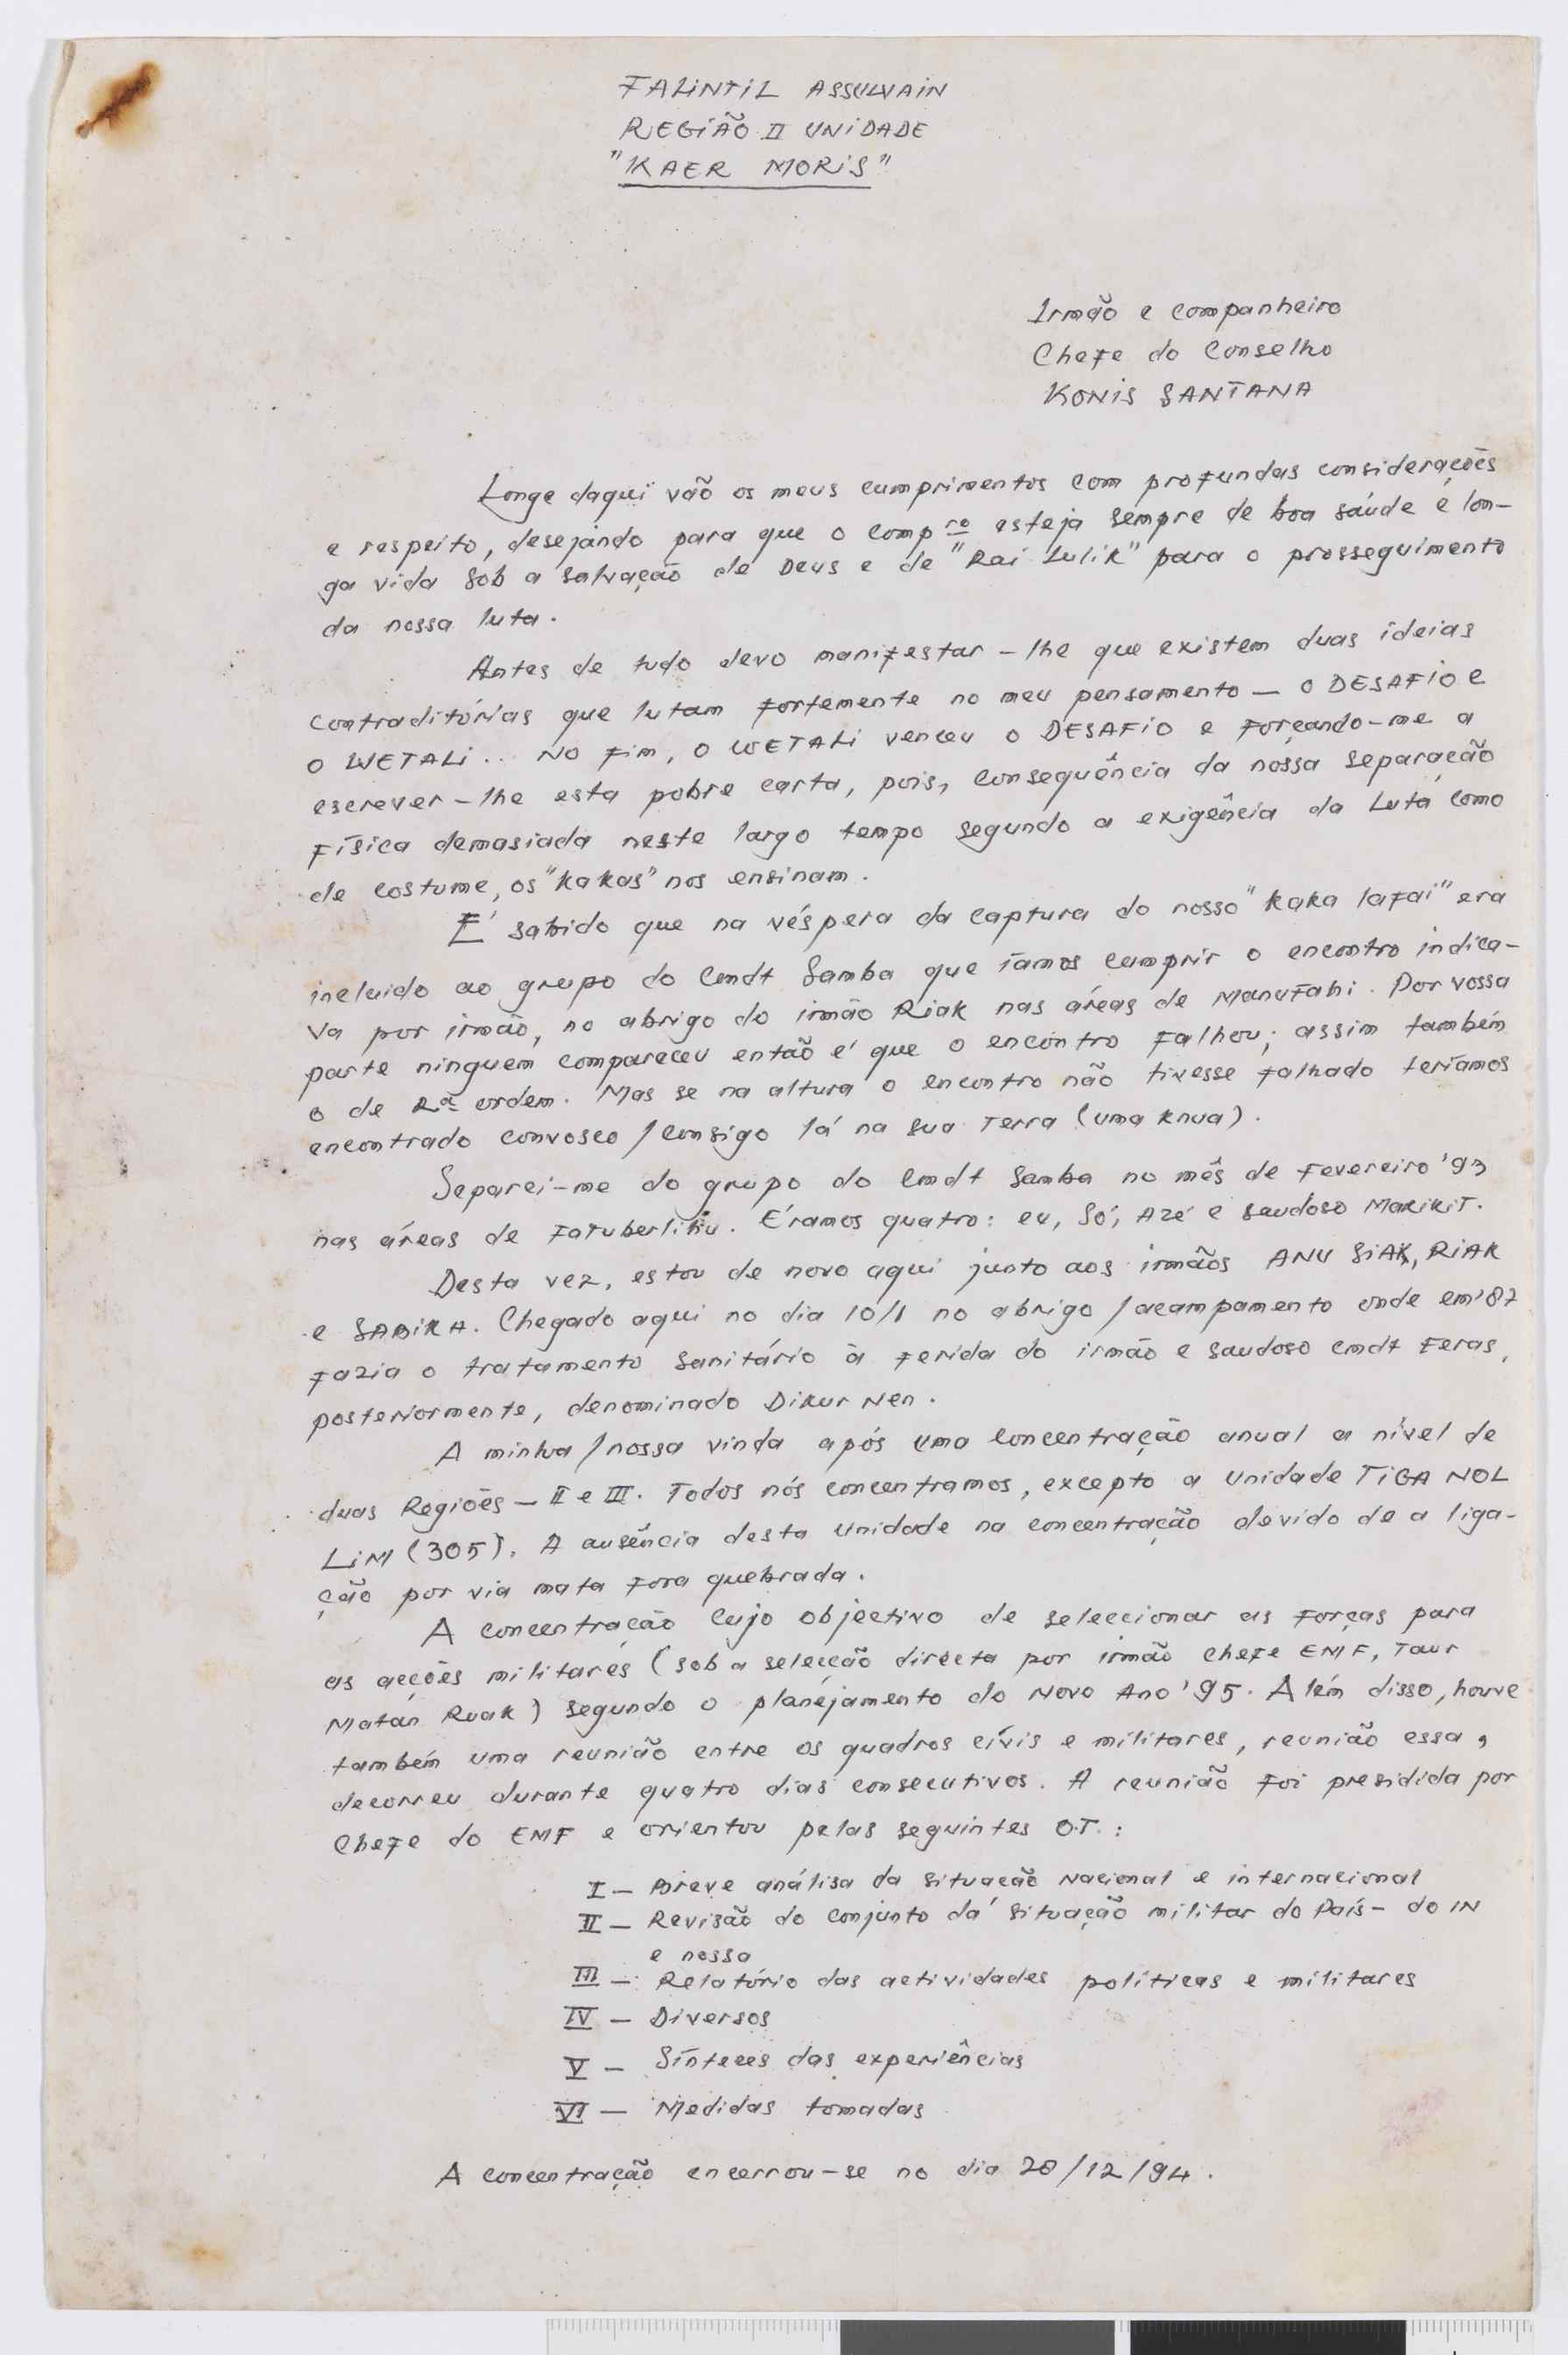 FALINTIL ASSUWAIN
REGIÃO II UNIDADE
"KAER MORIS"
Irmão e companheiro
Chefe do Conselho
KONIS SANTANA
Longe daqui vão os meus cumprimentos com profundas considerações
e respeito, desejando para que o comprº esteja sempre de boa saúde e lon-
ga vida sob a salvação de Deus e de "Rai Lulik" para o prosseguimento
da nossa luta.
Antes de tudo devo manifestar-lhe que existem duas ideias
contraditórias que lutam fortemente no meu pensamento — O DESAFIO e
O WETALI... No fim, o WETALI venceu o DESAFIO e forçando-me a
escrever-lhe esta pobre carta, pois, consequência da nossa separação
física demasiada neste largo tempo segundo a exigência da Luta como
de costume, os "kakas" nos ensinam.
É sabido que na véspera da captura do nosso "kaka lafai" era
incluido ao grupo do Cmdt Samba que íamos cumprir o encontro indica-
va por irmão, no abrigo do irmão Riak nas áreas de Manufahi. Por vossa
parte ninguem compareceu então é que o encontro falhou; assim também
o de 2ª ordem. Mas se na altura o encontro não tivesse falhado teríamos
encontrado convosco/consigo lá na sua Terra (uma knua).
Separei-me do grupo do Cmdt Samba no mês de Fevereiro '93
nas áreas de Fatuberlihu. Éramos quatro: eu, Só, Azé e saudoso Makikit.
Desta vez, estou de novo aqui junto aos irmãos ANU SIAK, RIAK
e SABIKA. Chegado aqui no dia 10/1 no abrigo/acampamento onde em '87
fazia o tratamento sanitário à ferida do irmão e saudoso cmdt Feras,
posteriormente, denominado Dikur Nen.
A minha/nossa vinda após uma concentração anual a nível de
duas Regiões — II e III. Todos nós concentramos, excepto a Unidade TIGA NOL
LIM (305). A ausência desta Unidade na concentração devido de a liga-
ção por via mata fora quebrada.
A concentração cujo objectivo de seleccionar as forças para
as acções militares (sob a selecção directa por irmão chefe EMF, Taur
Matan Ruak) segundo o planejamento do Novo Ano '95. Além disso, houve
também uma reunião entre os quadros cívis e militares, reunião essa,
decorreu durante quatro dias consecutivos. A reunião foi presidida por
Chefe do EMF e orientou pelas seguintes O.T.:
I — Breve análisa da situação Nacional e internacional
II — Revisão do conjunto da situação militar do País - do IN
e nossa
III — Relatório das actividades políticas e militares
IV — Diversos
V — Sínteces das experiências
VI — Medidas tomadas
A concentração encerrou-se no dia 20/12/94.